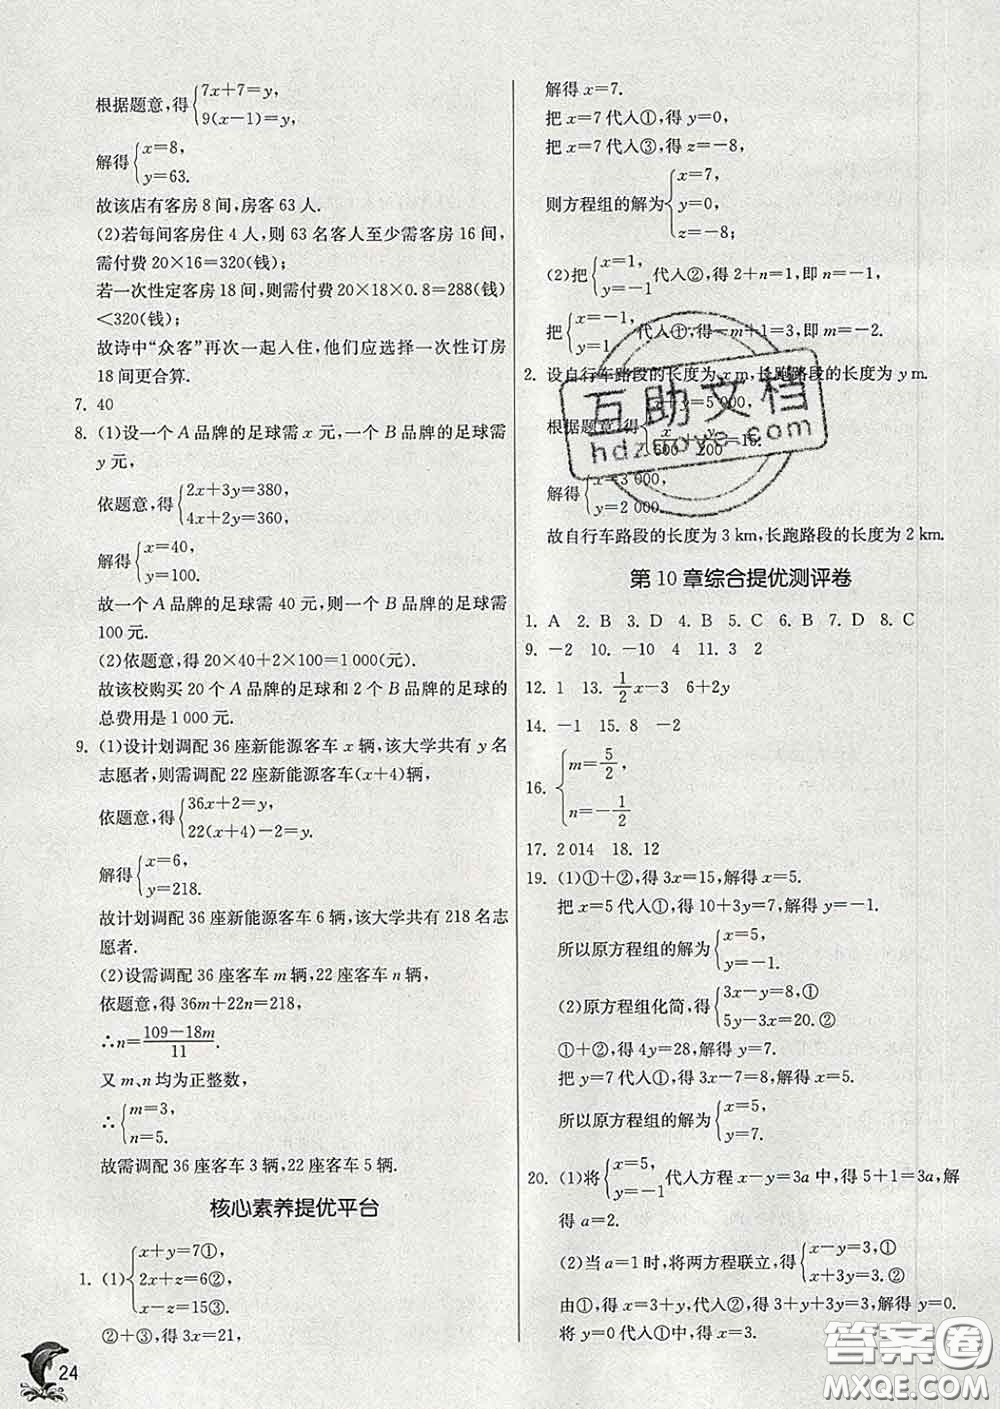 根据题意,得{7x+7=y,
9(x-1)=y,
解得{x=8,
y=63.
故该店有客房 8 间,房客 63 人.
(2)若每间客房住 4 人,则 63 名客人至少需客房 16 间,
需付费 20×16=320(钱);
若一次性定客房 18 间,则需付费 20×18×0.8=288(钱)
<320(钱);
故诗中“众客”再次一起入住,他们应选择一次性订房
18 间更合算.
7. 40
8. (1)设一个 A 品牌的足球需 x 元,一个 B 品牌的足球需
y 元,
依题意,得{2x+3y=380,
4x+2y=360,
解得{x=40,
y=100.
故一个 A 品牌的足球需 40 元,则一个 B 品牌的足球需
100 元.
(2)依题意,得 20×40+2×100=1 000(元).
故该校购买 20 个 A 品牌的足球和 2 个 B 品牌的足球的
总费用是 1 000 元.
9. (1)设计划调配 36 座新能源客车 x 辆,该大学共有 y 名
志愿者,则需调配 22 座新能源客车(x+4)辆,
依题意,得{36x+2=y,
22(x+4)-2=y.
解得{x=6,
y=218.
故计划调配 36 座新能源客车 6 辆,该大学共有 218 名志
愿者.
(2)设需调配 36 座客车 m 辆,22 座客车 n 辆,
依题意,得 36m+22n=218,
∴n=(109-18m)/11.
又 m、n 均为正整数,
∴{m=3,
n=5.
故需调配 36 座客车 3 辆,22 座客车 5 辆.
核心素养提优平台
1. (1){x+y=7①,
2x+z=6②,
x-z=15③.
②+③,得 3x=21,
24
解得 x=7.
把 x=7 代人①,得 y=0,
把 x=7 代人③,得 z=-8,
则方程组的解为{x=7,
y=0,
z=-8;
(2)把{x=1,
y=-1代人②,得 2+n=1,即 n=-1,
把{x=-1,
y=1 代人①,得-m+1=3,即 m=-2.
2. 设自行车路段的长度为 x m,长跑路段的长度为 y m.
根据题意,得{x+y=5 000,
x/600+y/200=15.
解得{x=3 000,
y=2 000.
故自行车路段的长度为 3 km,长跑路段的长度为 2 km.
第 10 章综合提优测评卷
1. A 2. B 3. D 4. B 5. C 6. B 7. D 8. C
9. -2 10. -10 4 11. 3 2
12. 1 13. 1/2x-3 6+2y
14. -1 15. 8 -2
16. {m=5/2,
n=-1/2
17. 2 014 18. 12
19. (1)①+②,得 3x=15,解得 x=5.
把 x=5 代人①,得 10+3y=7,解得 y=-1.
所以原方程组的解为{x=5,
y=-1.
(2)原方程组化简,得{3x-y=8,①
5y-3x=20.②
①+②,得 4y=28,解得 y=7.
把 y=7 代人①,得 3x-7=8,解得 x=5.
所以原方程组的解为{x=5,
y=7.
20. (1)将{x=5,
y=-1代人方程 x-y=3a 中,得 5+1=3a,解
得 a=2.
(2)当 a=1 时,将两方程联立,得{x-y=3,①
x+3y=3.②
由①,得 x=3+y,代人②,得 3+y+3y=3,解得 y=0.
将 y=0 代人①中,得 x=3.
互助文档
hdzuoye.com
答案圈
MXQE.COM